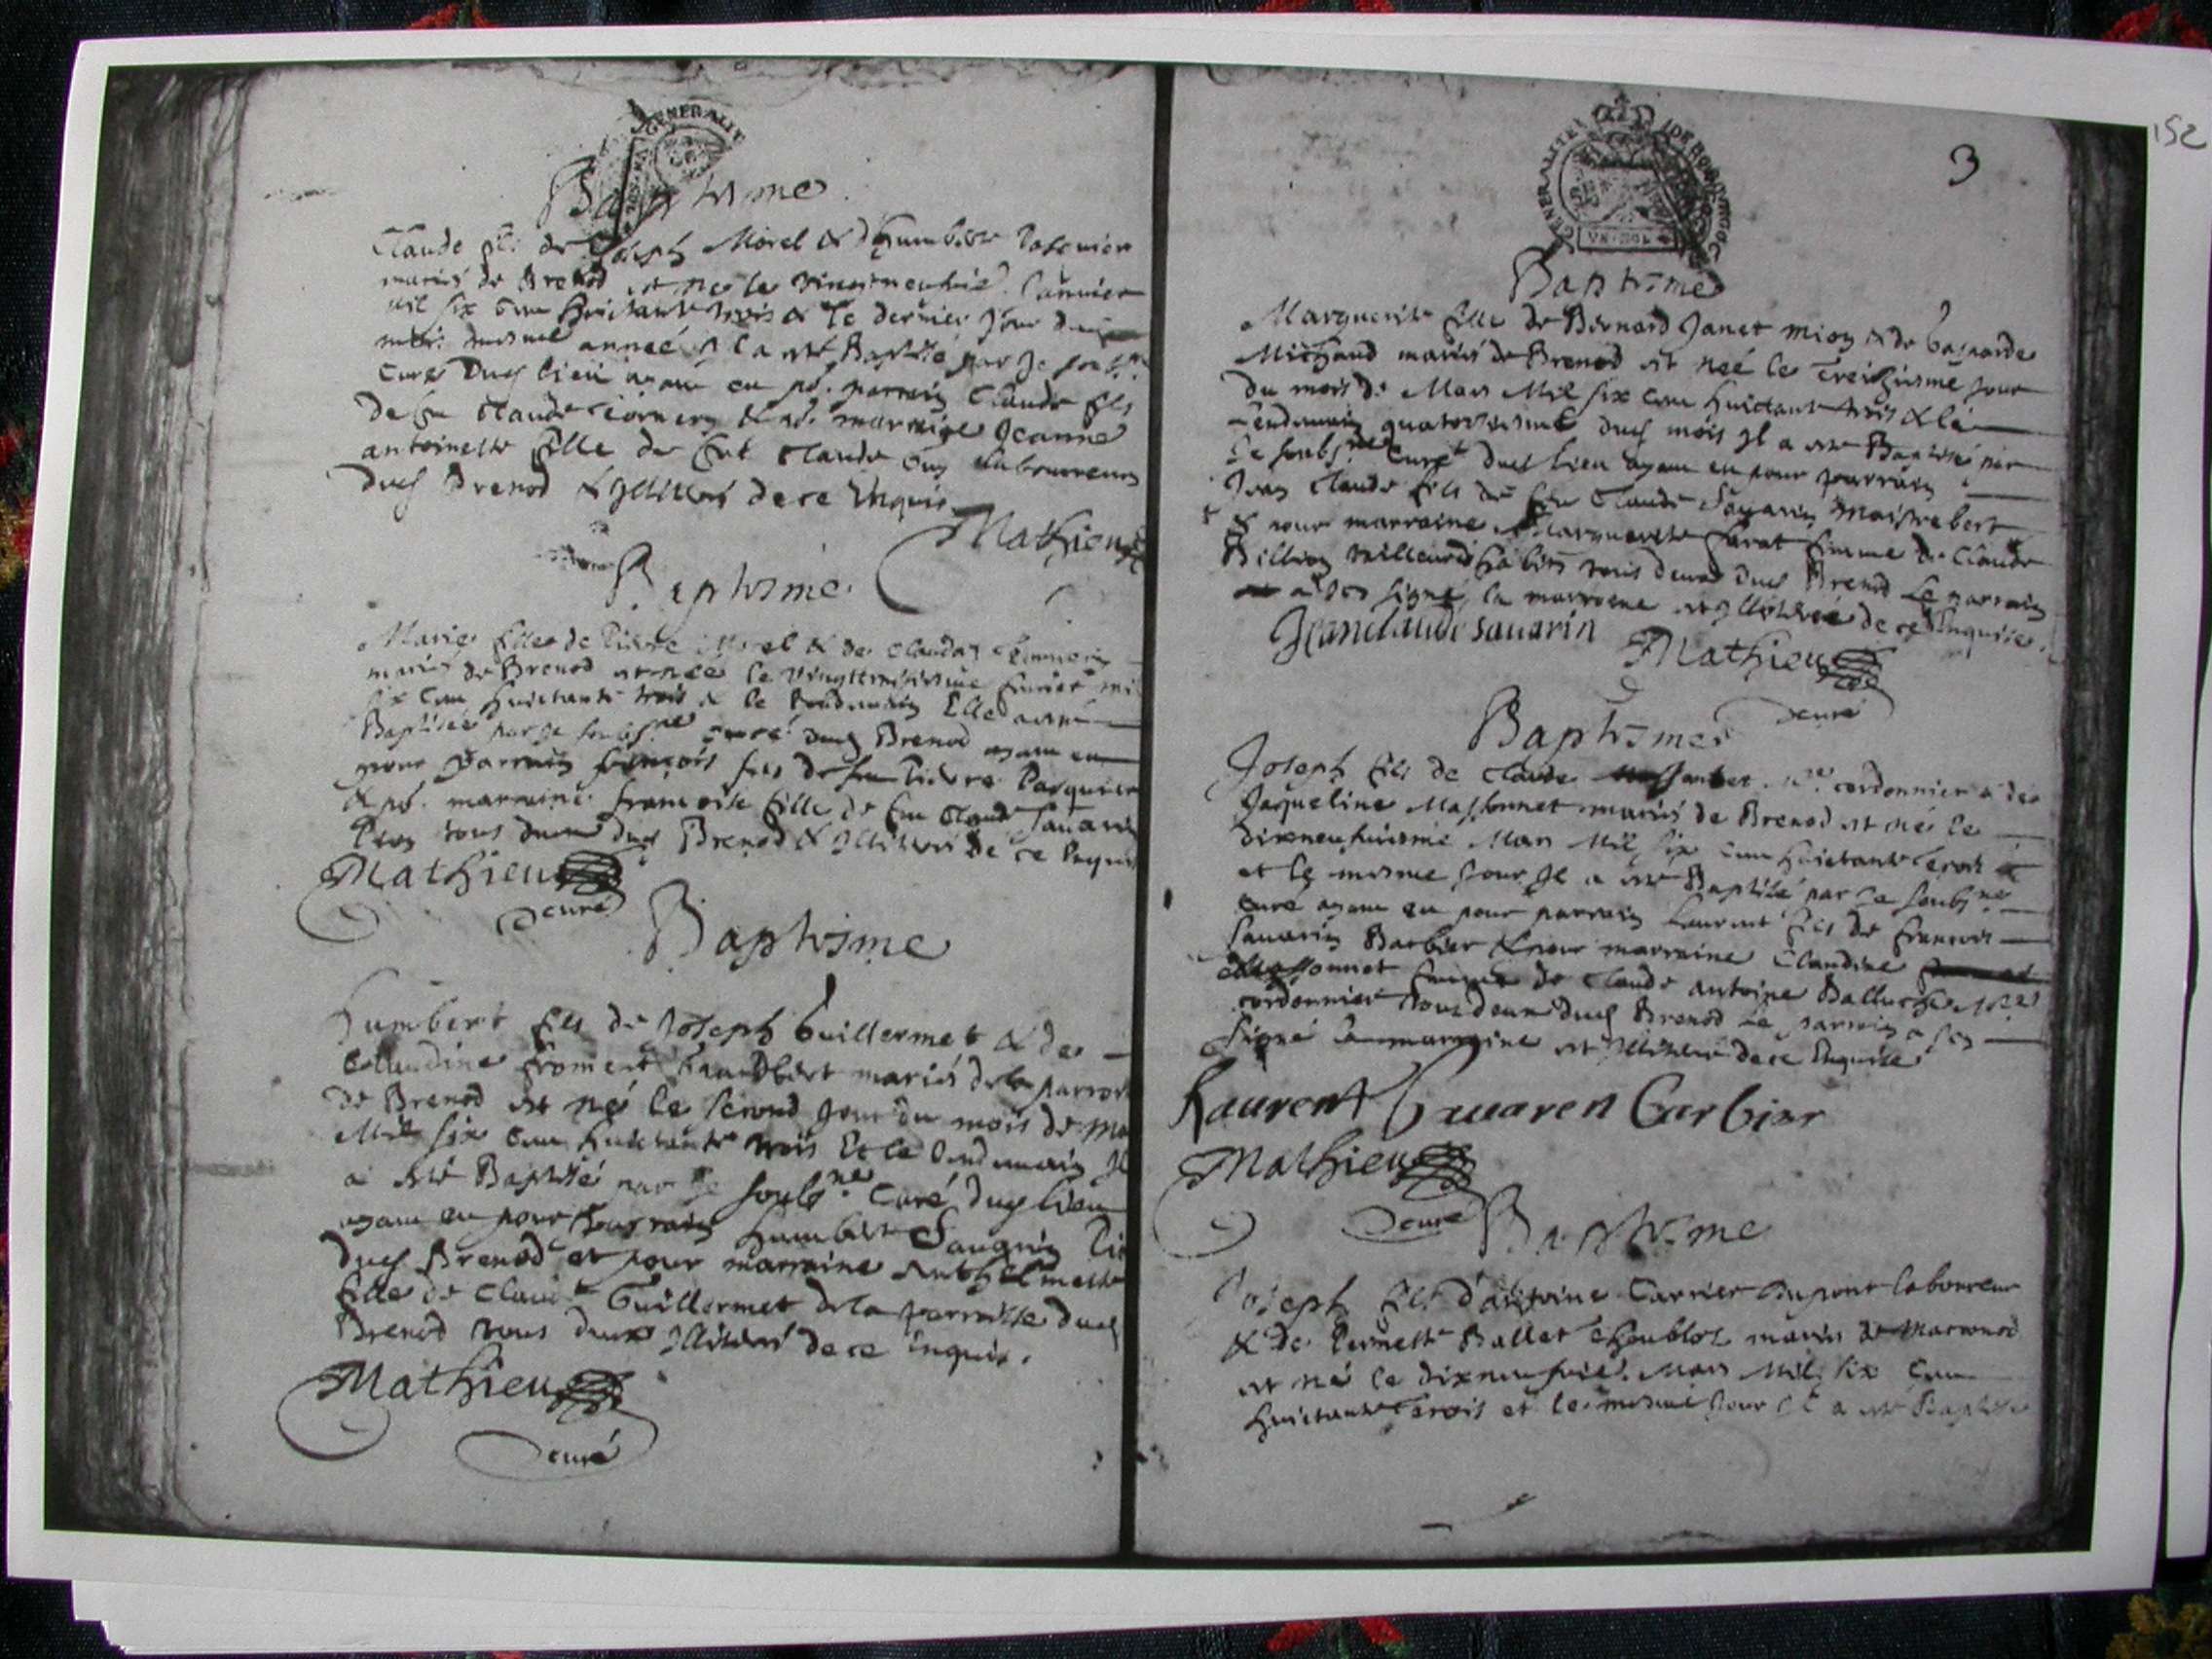 GENERALIT
Baptesme
Claude fils de Joseph Morel & d'humberte
mariés de Brenod est né le vingtneufvie. Janvier
mil six cent huictante trois & le dernier jour dud
mois mesme année il a esté Baptisé par je soubs.né
curé dud lieu ayant eu po. parrain Claude fils
de feu Claude & po. marraine Jeanne
antoinette fille de feu Claude Guy laboureurs
dud Brenod & illiterés de ce Enquis
Mathieu
Baptesme
Marie fille de Pierre Morel & de Clauda
mariés de Brenod est née le vingttroisiesme febvrier mil
six cent huictante trois & le lendemain Elle a esté
Baptisée par je soubs.né curé dud Brenod ayant eu
pour parrain françois fils de feu Pierre Pasquier
& po. marraine francoise fille de feu Claude Savarin
tous deux dud Brenod & illiterés de ce Enquis
Mathieu
curé
Baptesme
Humbert fils de Joseph Guillermet & de
Claudine froment mariés de la parroisse
de Brenod est né le second jour du mois de mars
Mil six cent huictante trois Et le lendemain Il
a esté Baptisé par je soubs.né Curé dud lieu
ayant eu pour parrain humbert
dud Brenod et pour marraine Anthelmette
fille de Claude Guillermet de la parroisse dud
Brenod tous deux illiterés de ce enquis.
Mathieu
curé
152
3
GENERALITE DE BOURGOGNE
Baptesme
Marguerite fille de Bernard Janet mion & de Gasparde
Michaud mariés de Brenod est née le treiziesme jour
du mois de Mars Mil six cent huictante trois & le
lendemain quatorziesme dud mois Il a esté Baptisé par
je soubs.né Curé dud lieu ayant eu pour parrain
Jean Claude fils de feu Claude Savarin Maistrebert
& pour marraine Marguerite femme de Claude
Billion tous deux dud Brenod Le parrain
a icy signé, la marraine est illiterée de ce Enquise.
Jean claude savarin
Mathieu
curé
Baptesme
Joseph fils de Claude cordonnier & de
Jaqueline Massonnet mariés de Brenod est né le
dixneufviesme Mars Mil six cent huictante trois
et le mesme jour Il a esté Baptisé par je soubs.né
Curé ayant eu pour parrain Laurent fils de francois
Savarin Barbier & pour marraine Claudine
Massonnet femme de Claude Antoine
cordonnier tous deux dud Brenod Le parrain a icy
signé La marraine est illiterée de ce Enquise
Laurent Savaren barbier
Mathieu
curé
Baptesme
Joseph fils d'antoine Carrier Dupont laboureur
& de Pernette Ballet mariés de
est né le dixneufvie. Mars Mil six Cent
huictante trois et le mesme jour il a esté Baptisé